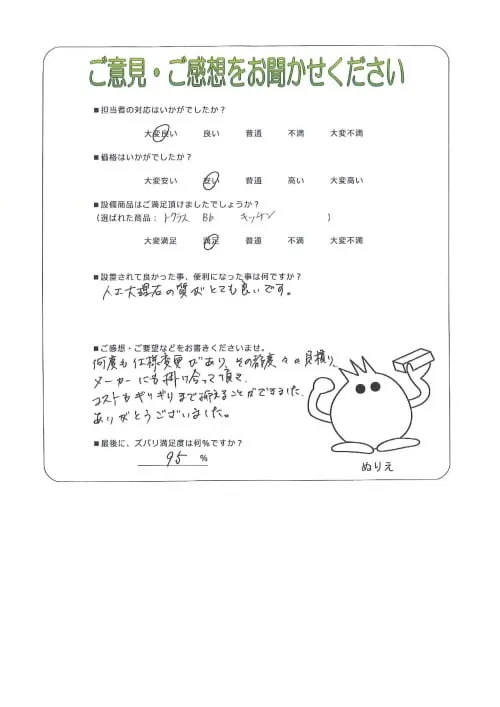 ご意見・ご感想をお聞かせください
■担当者の対応はいかがでしたか？
大変良い 良い 普通 不満 大変不満
■価格はいかがでしたか？
大変安い 安い 普通 高い 大変高い
■設備商品はご満足頂けましたでしょうか？
（選ばれた商品： トクラス Bb キッチン ）
大変満足 満足 普通 不満 大変不満
■設置されて良かった事、便利になった事は何ですか？
人工大理石の質がとても良いです。
■ご感想・ご要望などをお書きくださいませ。
何度も仕様変更があり、その都度々の見積り、
メーカーにも掛け合って頂き、
コストもギリギリまで抑えることができました。
ありがとうございました。
■最後に、ズバリ満足度は何%ですか？
95 %
ぬりえ